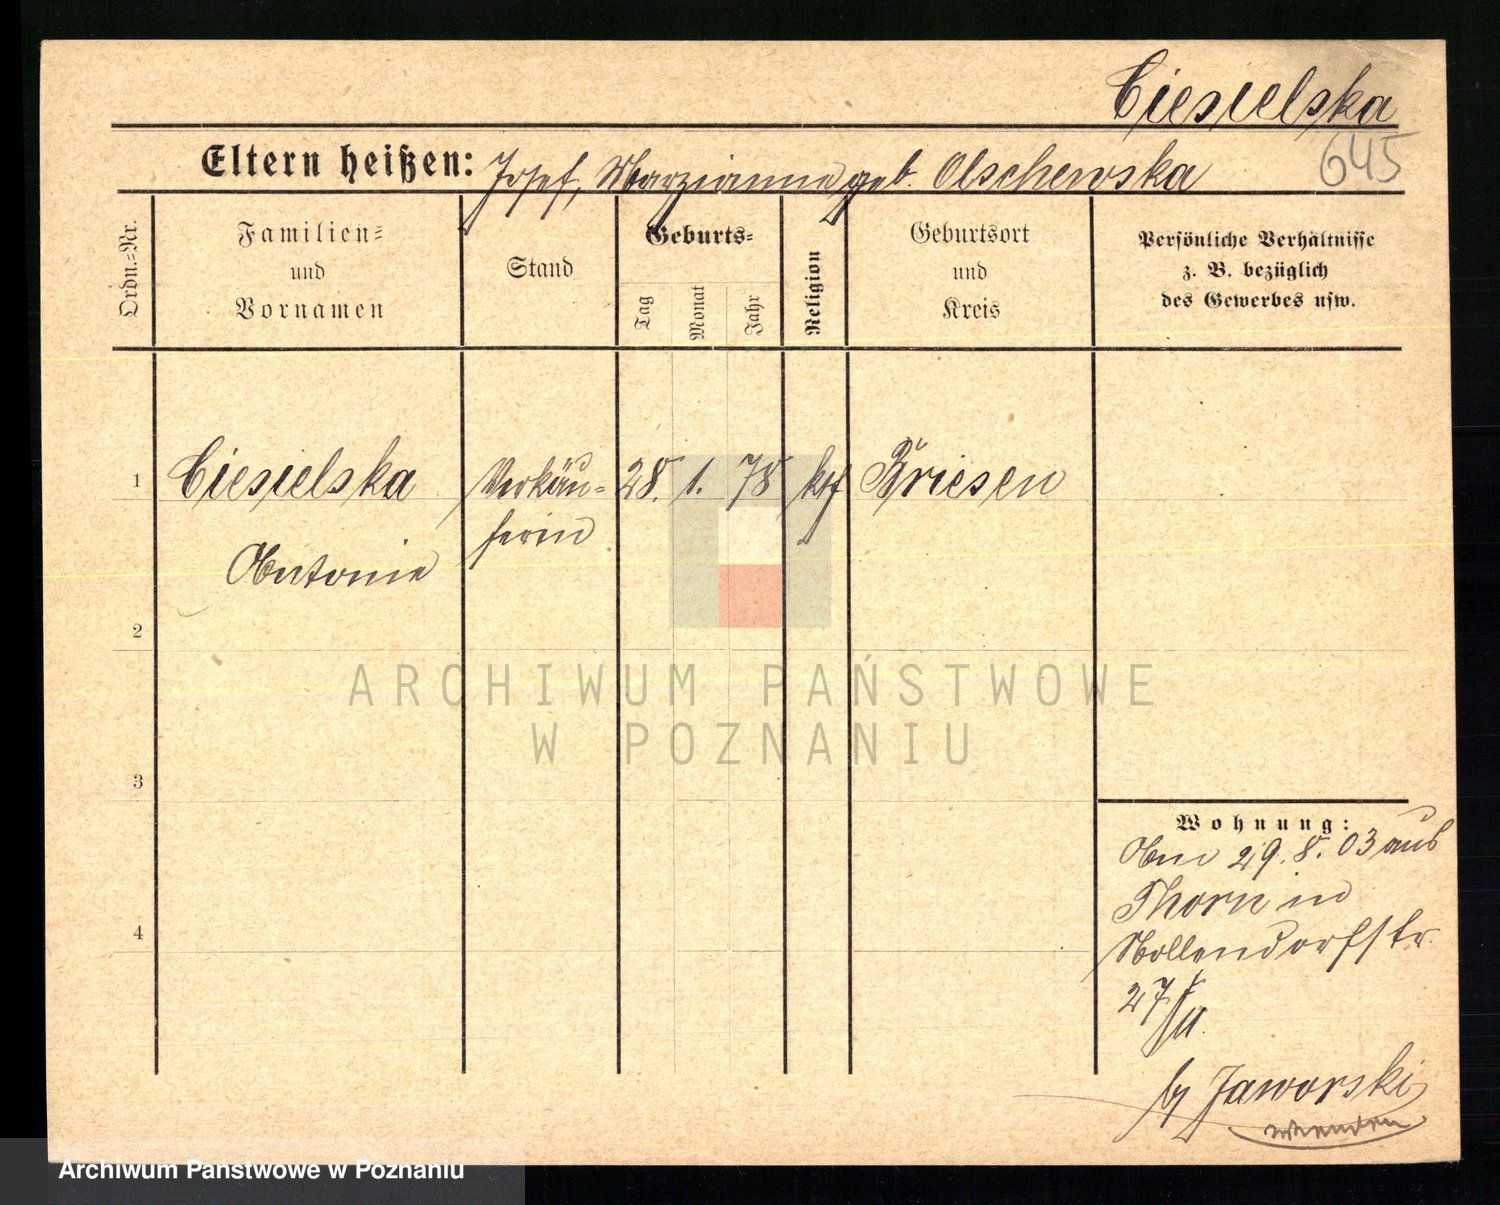 Ciesielska
645
Eltern heißen: Josef, Marzianna geb. Olschewska
Ordn.-Nr.
Familien-
und
Vornamen
Stand
Geburts-
Tag
Monat
Jahr
Religion
Geburtsort
und
Kreis
Persönliche Verhältnisse
z. B. bezüglich
des Gewerbes usw.
1
Ciesielska
Antonie
Verkäu-
ferin
28.
1.
78
ktf
Briesen
2
3
4
Wohnung:
Am 29.8.03 aus
Thorn in
Nollendorfstr.
27
b/ Jaworski
wenden
ARCHIWUM PAŃSTWOWE
W POZNANIU
Archiwum Państwowe w Poznaniu